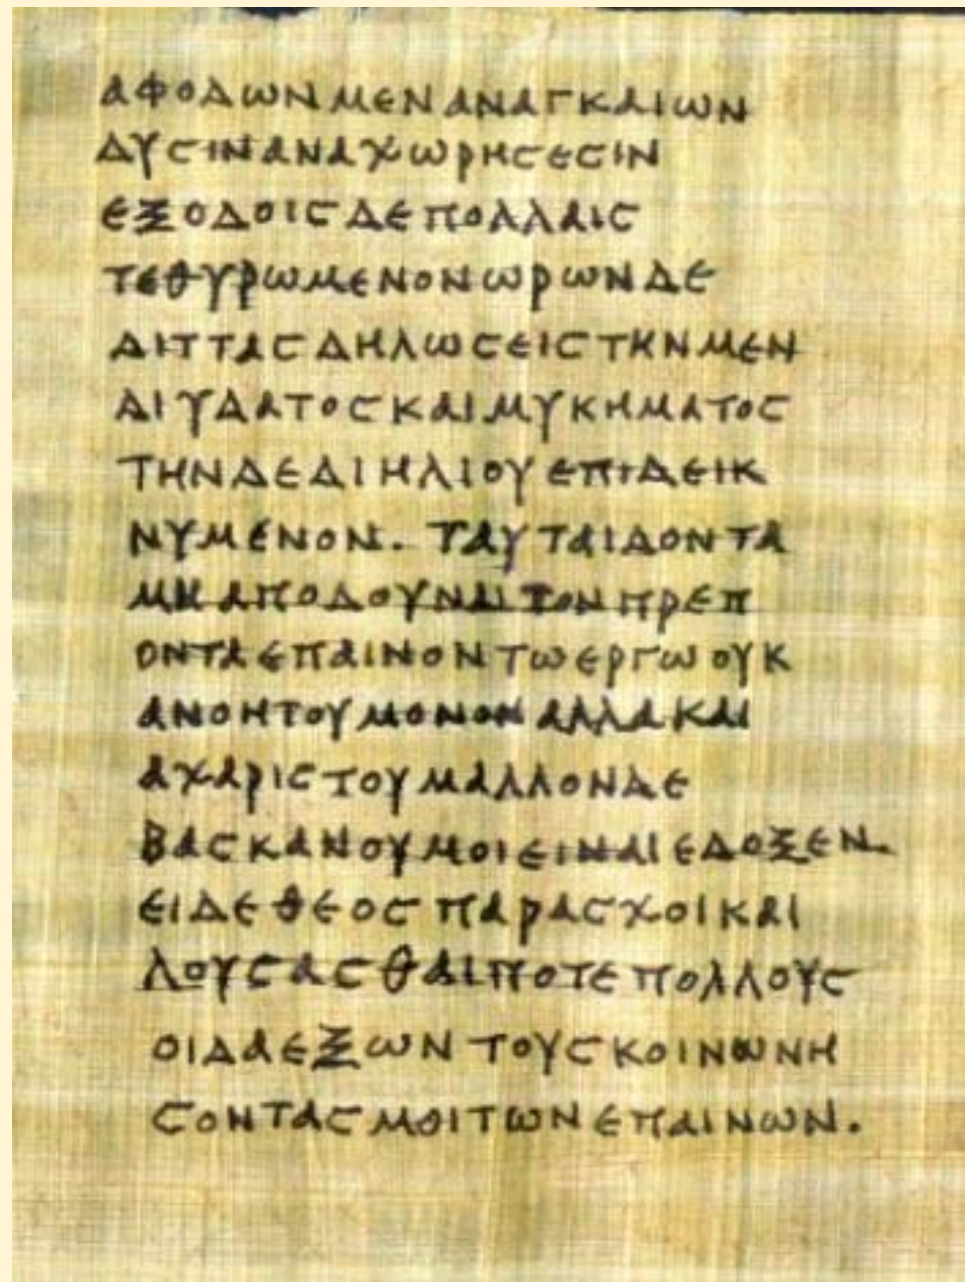 ΑΦΟΔΩΝ ΜΕΝ ΑΝΑΓΚΑΙΩΝ
ΔΥϹΙΝ ΑΝΑΧΩΡΗϹΕϹΙΝ
ΕΞΟΔΟΙϹ ΔΕ ΠΟΛΛΑΙϹ
ΤΕΘΥΡΩΜΕΝΟΝ ΩΡΩΝ ΔΕ
ΔΙΤΤΑϹ ΔΗΛΩϹΕΙϹ ΤΗΝ ΜΕΝ
ΔΙ ΥΔΑΤΟϹ ΚΑΙ ΜΥΚΗΜΑΤΟϹ
ΤΗΝ ΔΕ ΔΙ ΗΛΙΟΥ ΕΠΙΔΕΙΚ
ΝΥΜΕΝΟΝ. ΤΑΥΤΑ ΙΔΟΝΤΑ
ΜΗ ΑΠΟΔΟΥΝΑΙ ΤΟΝ ΠΡΕΠ
ΟΝΤΑ ΕΠΑΙΝΟΝ ΤΩ ΕΡΓΩ ΟΥΚ
ΑΝΟΗΤΟΥ ΜΟΝΟΝ ΑΛΛΑ ΚΑΙ
ΑΧΑΡΙϹΤΟΥ ΜΑΛΛΟΝ ΔΕ
ΒΑϹΚΑΝΟΥ ΜΟΙ ΕΙΝΑΙ ΕΔΟΞΕΝ.
ΕΙ ΔΕ ΘΕΟϹ ΠΑΡΑϹΧΟΙ ΚΑΙ
ΛΟΥϹΑϹΘΑΙ ΠΟΤΕ ΠΟΛΛΟΥϹ
ΟΙΔΑ ΕΞΩΝ ΤΟΥϹ ΚΟΙΝΩΝΗ
ϹΟΝΤΑϹ ΜΟΙ ΤΩΝ ΕΠΑΙΝΩΝ.